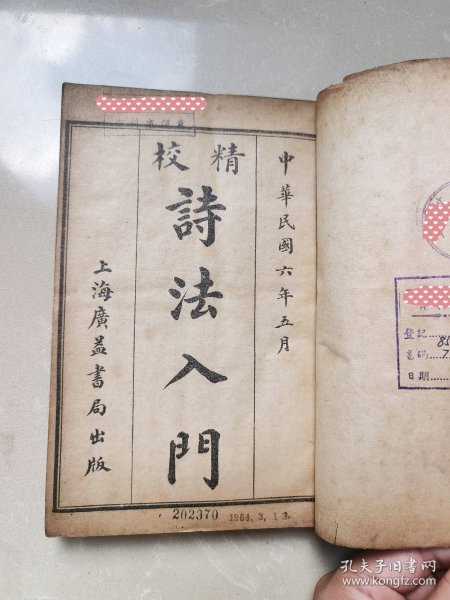 中華民國六年五月
精校
詩法入門
上海廣益書局出版
202370
1954, 3, 13.
登記
書碼
日期
孔夫子旧书网
www.kongfz.com